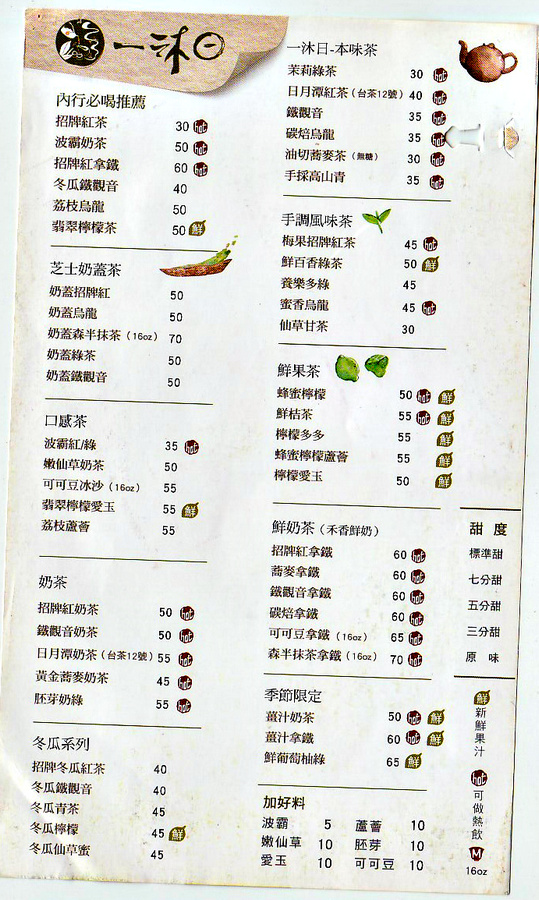 一沐日
內行必喝推薦
招牌紅茶 30 hot
波霸奶茶 50 hot
招牌紅拿鐵 60 hot
冬瓜鐵觀音 40
荔枝烏龍 50
翡翠檸檬茶 50 鮮
芝士奶蓋茶
奶蓋招牌紅 50
奶蓋烏龍 50
奶蓋森半抹茶（16oz） 70
奶蓋綠茶 50
奶蓋鐵觀音 50
口感茶
波霸紅/綠 35 hot
嫩仙草奶茶 50
可可豆冰沙（16oz） 55
翡翠檸檬愛玉 55 鮮
荔枝蘆薈 55
奶茶
招牌紅奶茶 50 hot
鐵觀音奶茶 50 hot
日月潭奶茶（台茶12號） 55 hot
黃金蕎麥奶茶 45 hot
胚芽奶綠 55 hot
冬瓜系列
招牌冬瓜紅茶 40
冬瓜鐵觀音 40
冬瓜青茶 45
冬瓜檸檬 45 鮮
冬瓜仙草蜜 45
一沐日-本味茶
茉莉綠茶 30 hot
日月潭紅茶（台茶12號） 40 hot
鐵觀音 35 hot
碳焙烏龍 35 hot
油切蕎麥茶（無糖） 30 hot
手採高山青 35 hot
手調風味茶
梅果招牌紅茶 45 hot
鮮百香綠茶 50 鮮
養樂多綠 45
蜜香烏龍 45 hot
仙草甘茶 30
鮮果茶
蜂蜜檸檬 50 hot 鮮
鮮桔茶 55 hot 鮮
檸檬多多 55 鮮
蜂蜜檸檬蘆薈 55 鮮
檸檬愛玉 50 鮮
鮮奶茶（禾香鮮奶）
招牌紅拿鐵 60 hot
蕎麥拿鐵 60 hot
鐵觀音拿鐵 60 hot
碳焙拿鐵 60 hot
可可豆拿鐵（16oz） 65 hot
森半抹茶拿鐵（16oz） 70 hot
季節限定
薑汁奶茶 50 hot 鮮
薑汁拿鐵 60 hot 鮮
鮮葡萄柚綠 65 鮮
加好料
波霸 5 蘆薈 10
嫩仙草 10 胚芽 10
愛玉 10 可可豆 10
甜 度
標準甜
七分甜
五分甜
三分甜
原 味
鮮 新鮮果汁
hot 可做熱飲
M
16oz